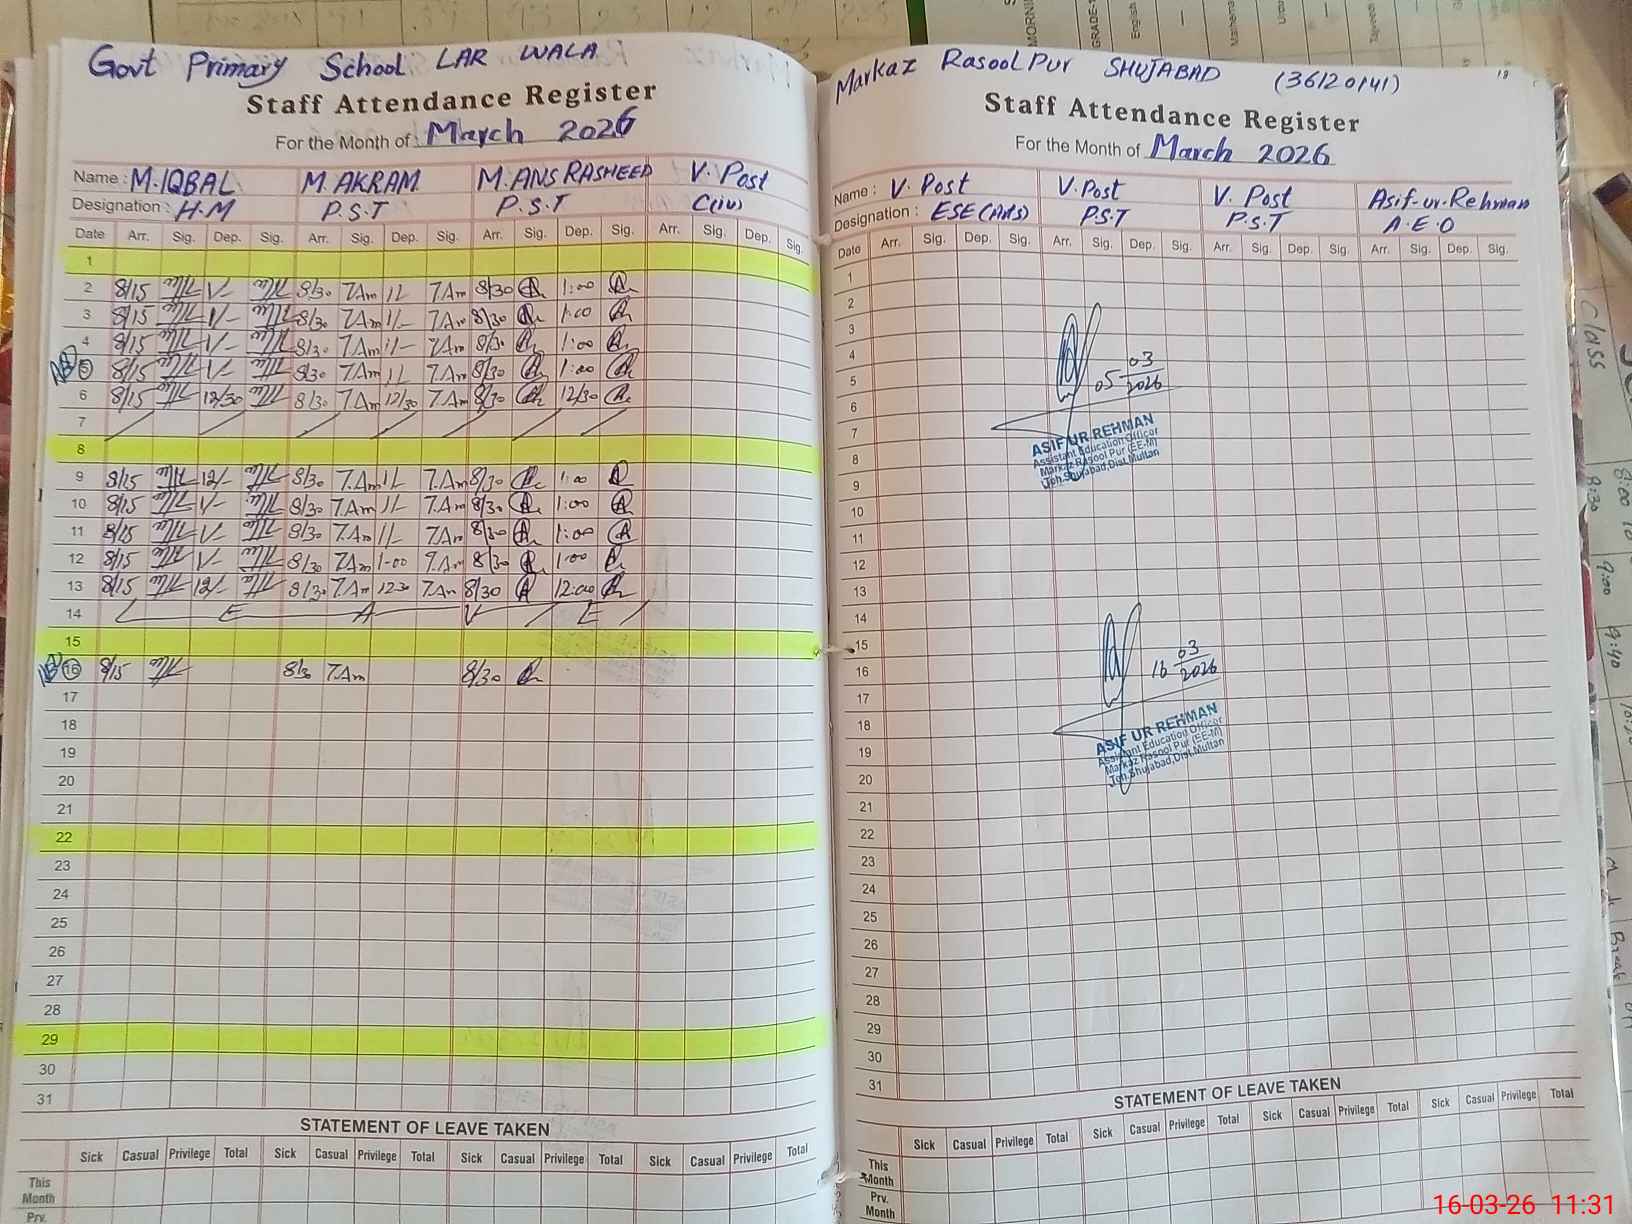 Govt Primary School LAR WALA
Staff Attendance Register
For the Month of March 2026
Name : M.IQBAL M.AKRAM M.ANS RASHEED V. Post
Designation : H.M P.S.T P.S.T C(iv)
Date Arr. Sig. Dep. Sig. Arr. Sig. Dep. Sig. Arr. Sig. Dep. Sig. Arr. Sig. Dep. Sig.
1
2 8/15 1/- 8/30 7Am 1/- 7Am 8/30 1:00
3 8/15 1/- 8/30 7Am 1/- 7Am 8/30 1:00
4 8/15 1/- 8/30 7Am 1/- 7Am 8/30 1:00
5 8/15 1/- 8/30 7Am 1/- 7Am 8/30 1:00
6 8/15 12/30 8/30 7Am 12/30 7Am 8/30 12/30
7
8
9 8/15 12/- 8/30 7.Am 1/- 7.Am 8/30 1:00
10 8/15 1/- 8/30 7.Am 1/- 7.Am 8/30 1:00
11 8/15 1/- 8/30 7.Am 1/- 7Am 8/30 1:00
12 8/15 1/- 8/30 7Am 1-00 7.Am 8/30 1:00
13 8/15 12/- 8/30 7Am 12.30 7Am 8/30 12:00
14 L E A V E
15
16 8/15 8/30 7.Am 8/30
17
18
19
20
21
22
23
24
25
26
27
28
29
30
31
STATEMENT OF LEAVE TAKEN
Sick Casual Privilege Total Sick Casual Privilege Total Sick Casual Privilege Total Sick Casual Privilege Total
This Month
Prv.
Markaz Rasool Pur SHUJABAD (36120141)
18
Staff Attendance Register
For the Month of March 2026
Name : V. Post V. Post V. Post Asif-ur-Rehman
Designation : ESE (Arts) P.S.T P.S.T A.E.O
Date Arr. Sig. Dep. Sig. Arr. Sig. Dep. Sig. Arr. Sig. Dep. Sig. Arr. Sig. Dep. Sig.
1
2
3
4
5 05 03 2026
6
7
ASIF UR REHMAN
Assistant Education Officer
Markaz Rasool Pur (EE-M)
Teh.Shujabad,Dist.Multan
8
9
10
11
12
13
14
15
16 16 03 2026
17
18
ASIF UR REHMAN
Assistant Education Officer
Markaz Rasool Pur (EE-M)
Teh.Shujabad,Dist.Multan
19
20
21
22
23
24
25
26
27
28
29
30
31
STATEMENT OF LEAVE TAKEN
Sick Casual Privilege Total Sick Casual Privilege Total Sick Casual Privilege Total Sick Casual Privilege Total
This Month
Prv. Month
GRADE-
English
Class
8:00
8:30
9:00
9:40
Break
16-03-26 11:31